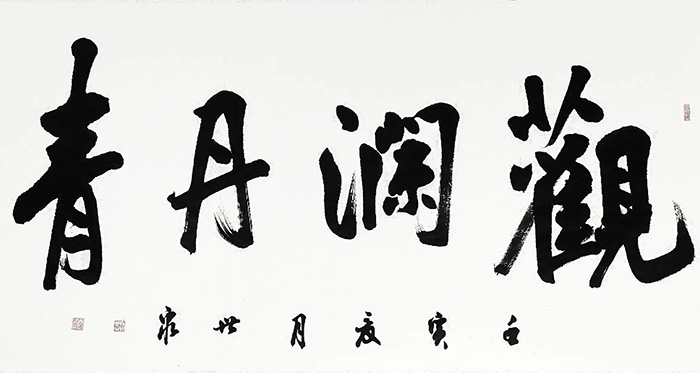 觀瀾丹青
壬寅夏月世